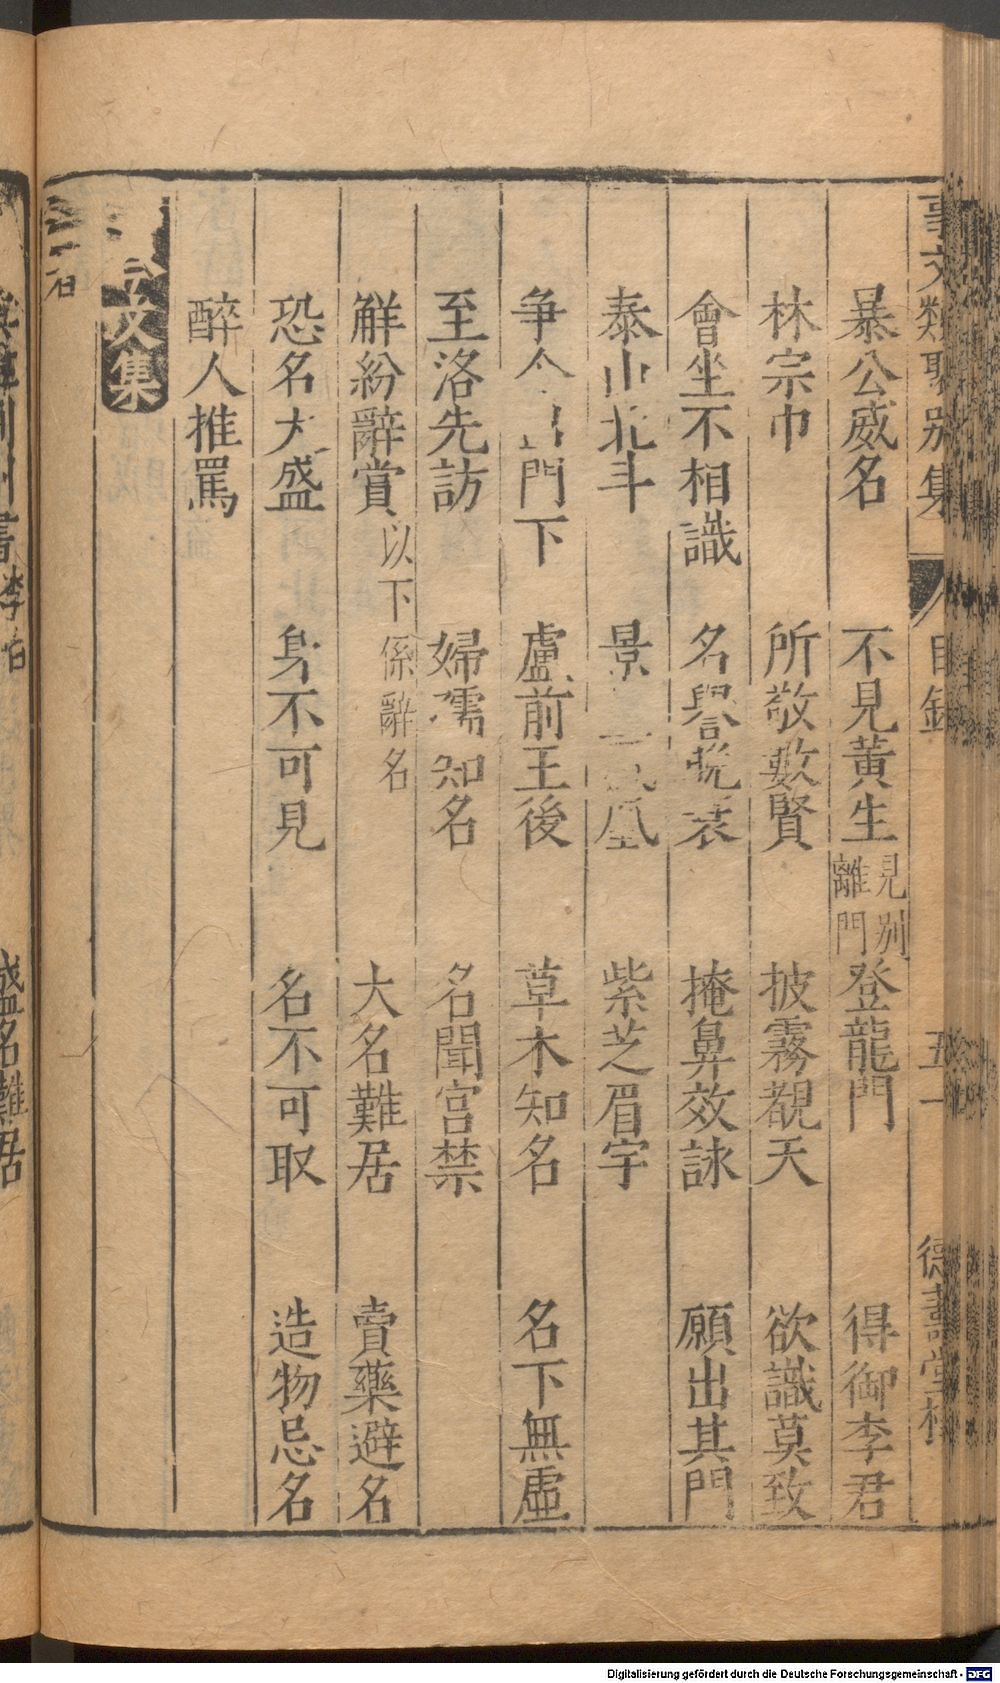 事文類聚別集
目錄
五十
德壽堂梓
暴公威名 不見黃生 見別離門 登龍門 得御李君
林宗巾 所敬數賢 披霧覩天 欲識莫致
會坐不相識 名譽 掩鼻效詠 願出其門
泰山北斗 景 紫芝眉宇
爭 門下 盧前王後 草木知名 名下無虛
至洛先訪 婦孺知名 名聞宮禁
觧紛辭賞 以下係辭名 大名難居 賣藥避名
恐名太盛 身不可見 名不可取 造物忌名
醉人推罵
文集
書
盛名難居
Digitalisierung gefördert durch die Deutsche Forschungsgemeinschaft - DFG